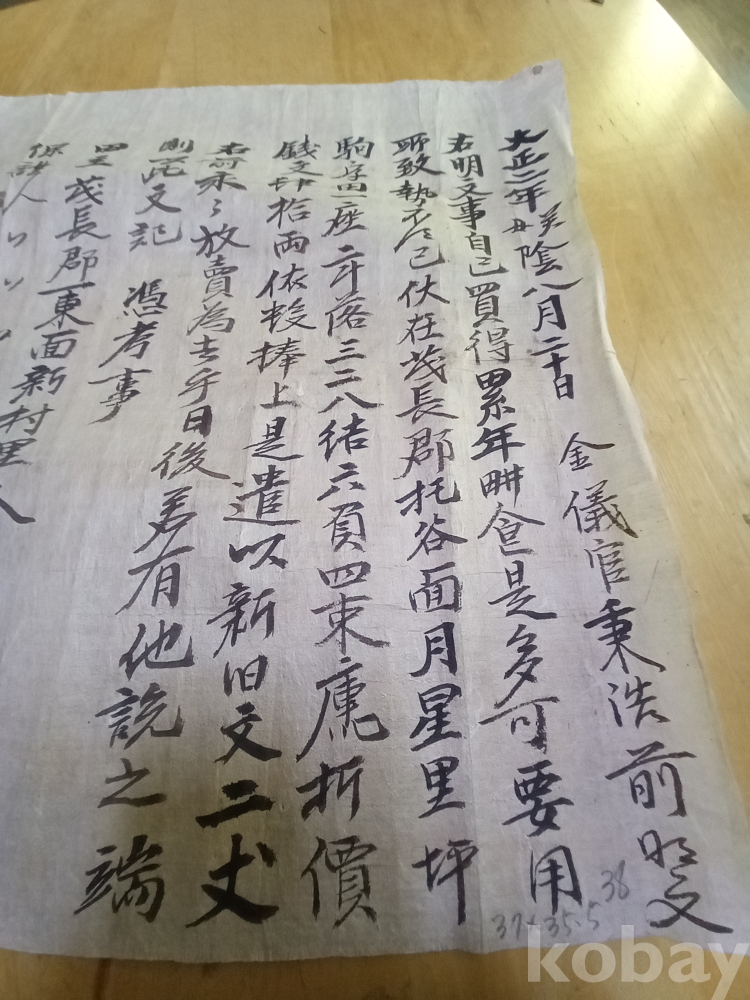 大正二年癸丑陰八月二十日 金儀官秉浩前明文
右明文事自己買得累年畊食是多可要用
所致執不得已伏在茂長郡托谷面月星里坪
駒字畓一座六斗落三二八結六負四束庫折價
錢文肆拾兩依數捧上是遣以新旧文二丈
右前永永放賣為去乎日後若有他說之端
則此文記憑考事
畓主茂長郡一東面新村里
保證人
37×35.5
38
kobay